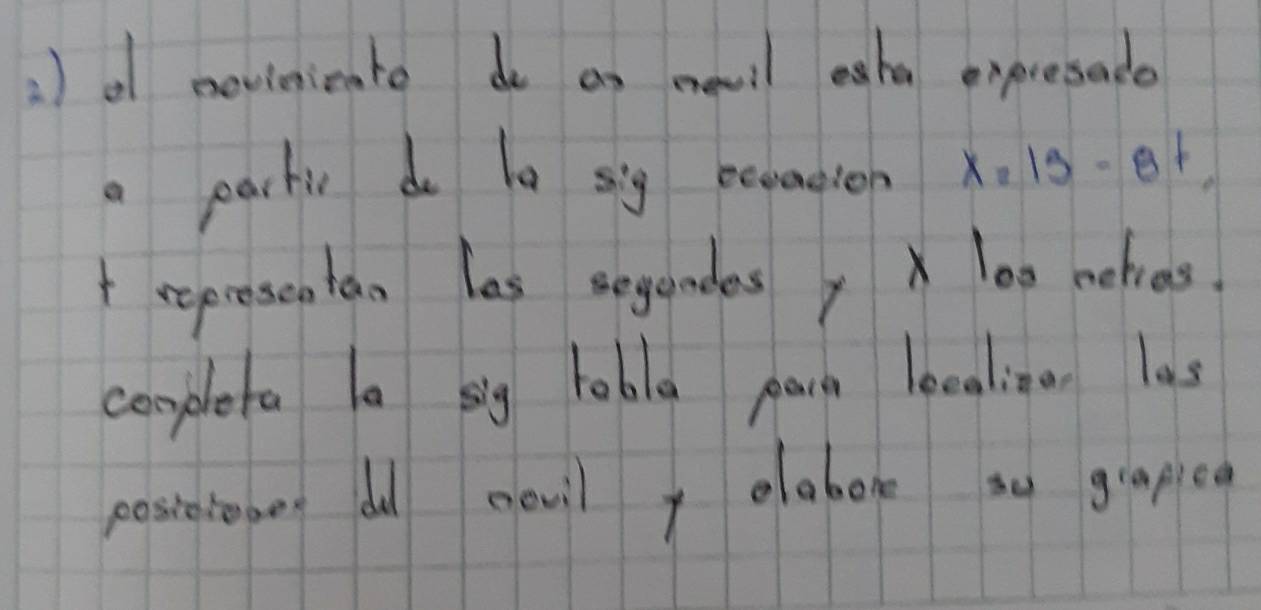 2) el movimiento de un movil esta expresado
a partir de la sig ecuacion x = 15 - 8t,
t representan los segundos y x los metros.
completa la sig tabla para localizar las
posiciones del movil y elabore su grafica